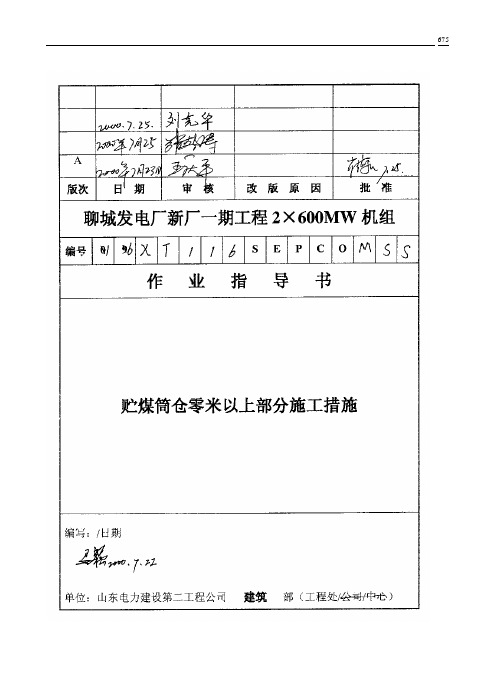 675
2000.7.25. 刘克华
2000年7月25
A 2000年7月23日 7.25.
版次 日期 审核 改版原因 批准
聊城发电厂新厂一期工程2×600MW机组
编号 X T 1 1 6 S E P C O M S S
作业指导书
贮煤筒仓零米以上部分施工措施
编写:/日期
2000.7.22
单位:山东电力建设第二工程公司 建筑 部(工程处/公司/中心)